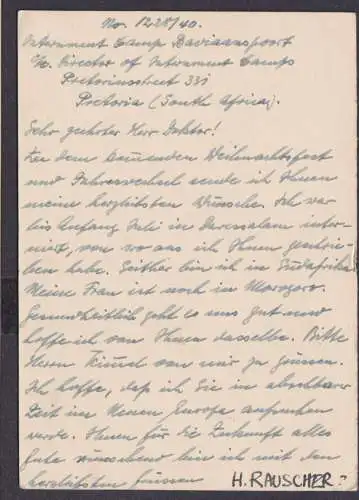 No. 1228/40.
Internment Camp Baviaanspoort
c/o. Director of Internment Camps
Pretoriusstreet 331
Pretoria (South Africa).
Sehr geehrter Herr Doktor!
Zu dem kommenden Weihnachtsfest
und Jahreswechsel sende ich Ihnen
meine herzlichsten Wünsche. Ich war
bis Anfang Juli in Daressalam inter-
niert, von wo aus ich Ihnen geschrie-
ben habe. Seither bin ich in Südafrika.
Meine Frau ist noch in Morogoro.
Gesundheitlich geht es uns gut und
hoffe ich von Ihnen dasselbe. Bitte
Herrn von mir zu grüssen.
Ich hoffe, daß ich Sie in absehbarer
Zeit im Neuen Europa aufsuchen
werde. Ihnen für die Zukunft alles
Gute wünschend bin ich mit den
herzlichsten Grüssen
H. RAUSCHER